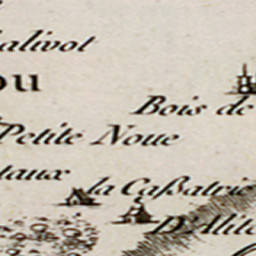 alivot
ou
Bois de
Petite Noue
taux
la Caßatrie
D'Alite